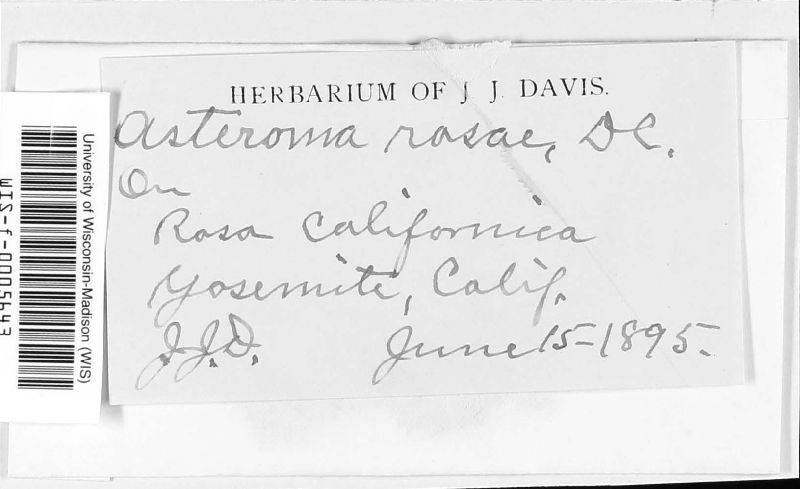 HERBARIUM OF J. J. DAVIS.
Asteroma rosae, DC.
On
Rosa Californica
Yosemite, Calif.
J.J.D. June 15-1895.
University of Wisconsin-Madison (WIS)
WIS-f-0005643